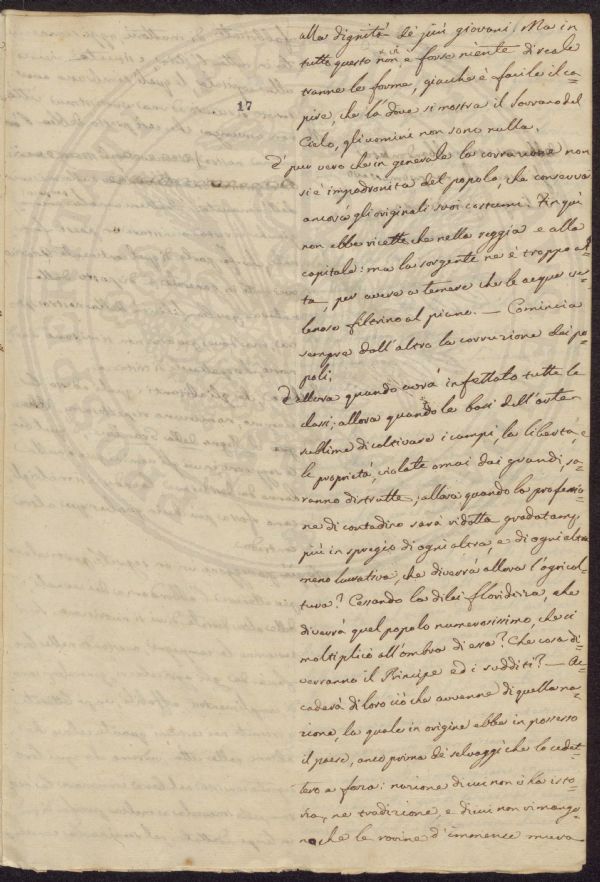 alla dignità de' più giovani. Ma in
tutto questo non v'è forse niente di reale
tranne le forme, giacchè è facile il ca-
pire, che là dove si mostra il Sovrano del
Cielo, gli uomini non sono nulla.
17
E' pur vero che in generale la corruzione non
si è impadronita del popolo, che conserva
ancora gli originali suoi costumi. Fin quì
non ebbe ricetto che nella reggia e alla
capitale: ma la sorgente ne è troppo al-
ta, per avere a temere che le acque ve-
lenose filtrino al piano. — Comincia
sempre dall'alto la corruzione dei po-
poli;
E allora quando avrà infettato tutte le
classi; allora quando le basi dell'arte
sublime di coltivare i campi, la libertà, e
le proprietà, violate omai dai grandi, sa-
ranno distrutte; allora quando la professio-
ne di contadino sarà ridotta gradatamte
più in spregio di ogni altra, e di ogni altra
meno lucrativa, che diverrà allora l'agricol-
tura? Cessando la di lei floridezza, che
diverrà quel popolo numerosissimo, che si
moltiplicò all'ombra di essa? Che cosa di-
verranno il Principe ed i sudditi? — Ac-
caderà di loro ciò che avvenne di quella na-
zione, la quale in origine ebbe in possesso
il paese, anco prima de' selvaggi che lo cedet-
tero a forza: nazione di cui non v'ha isto-
ria, ne tradizione, e di cui non rimango-
no che le rovine d'immense mura